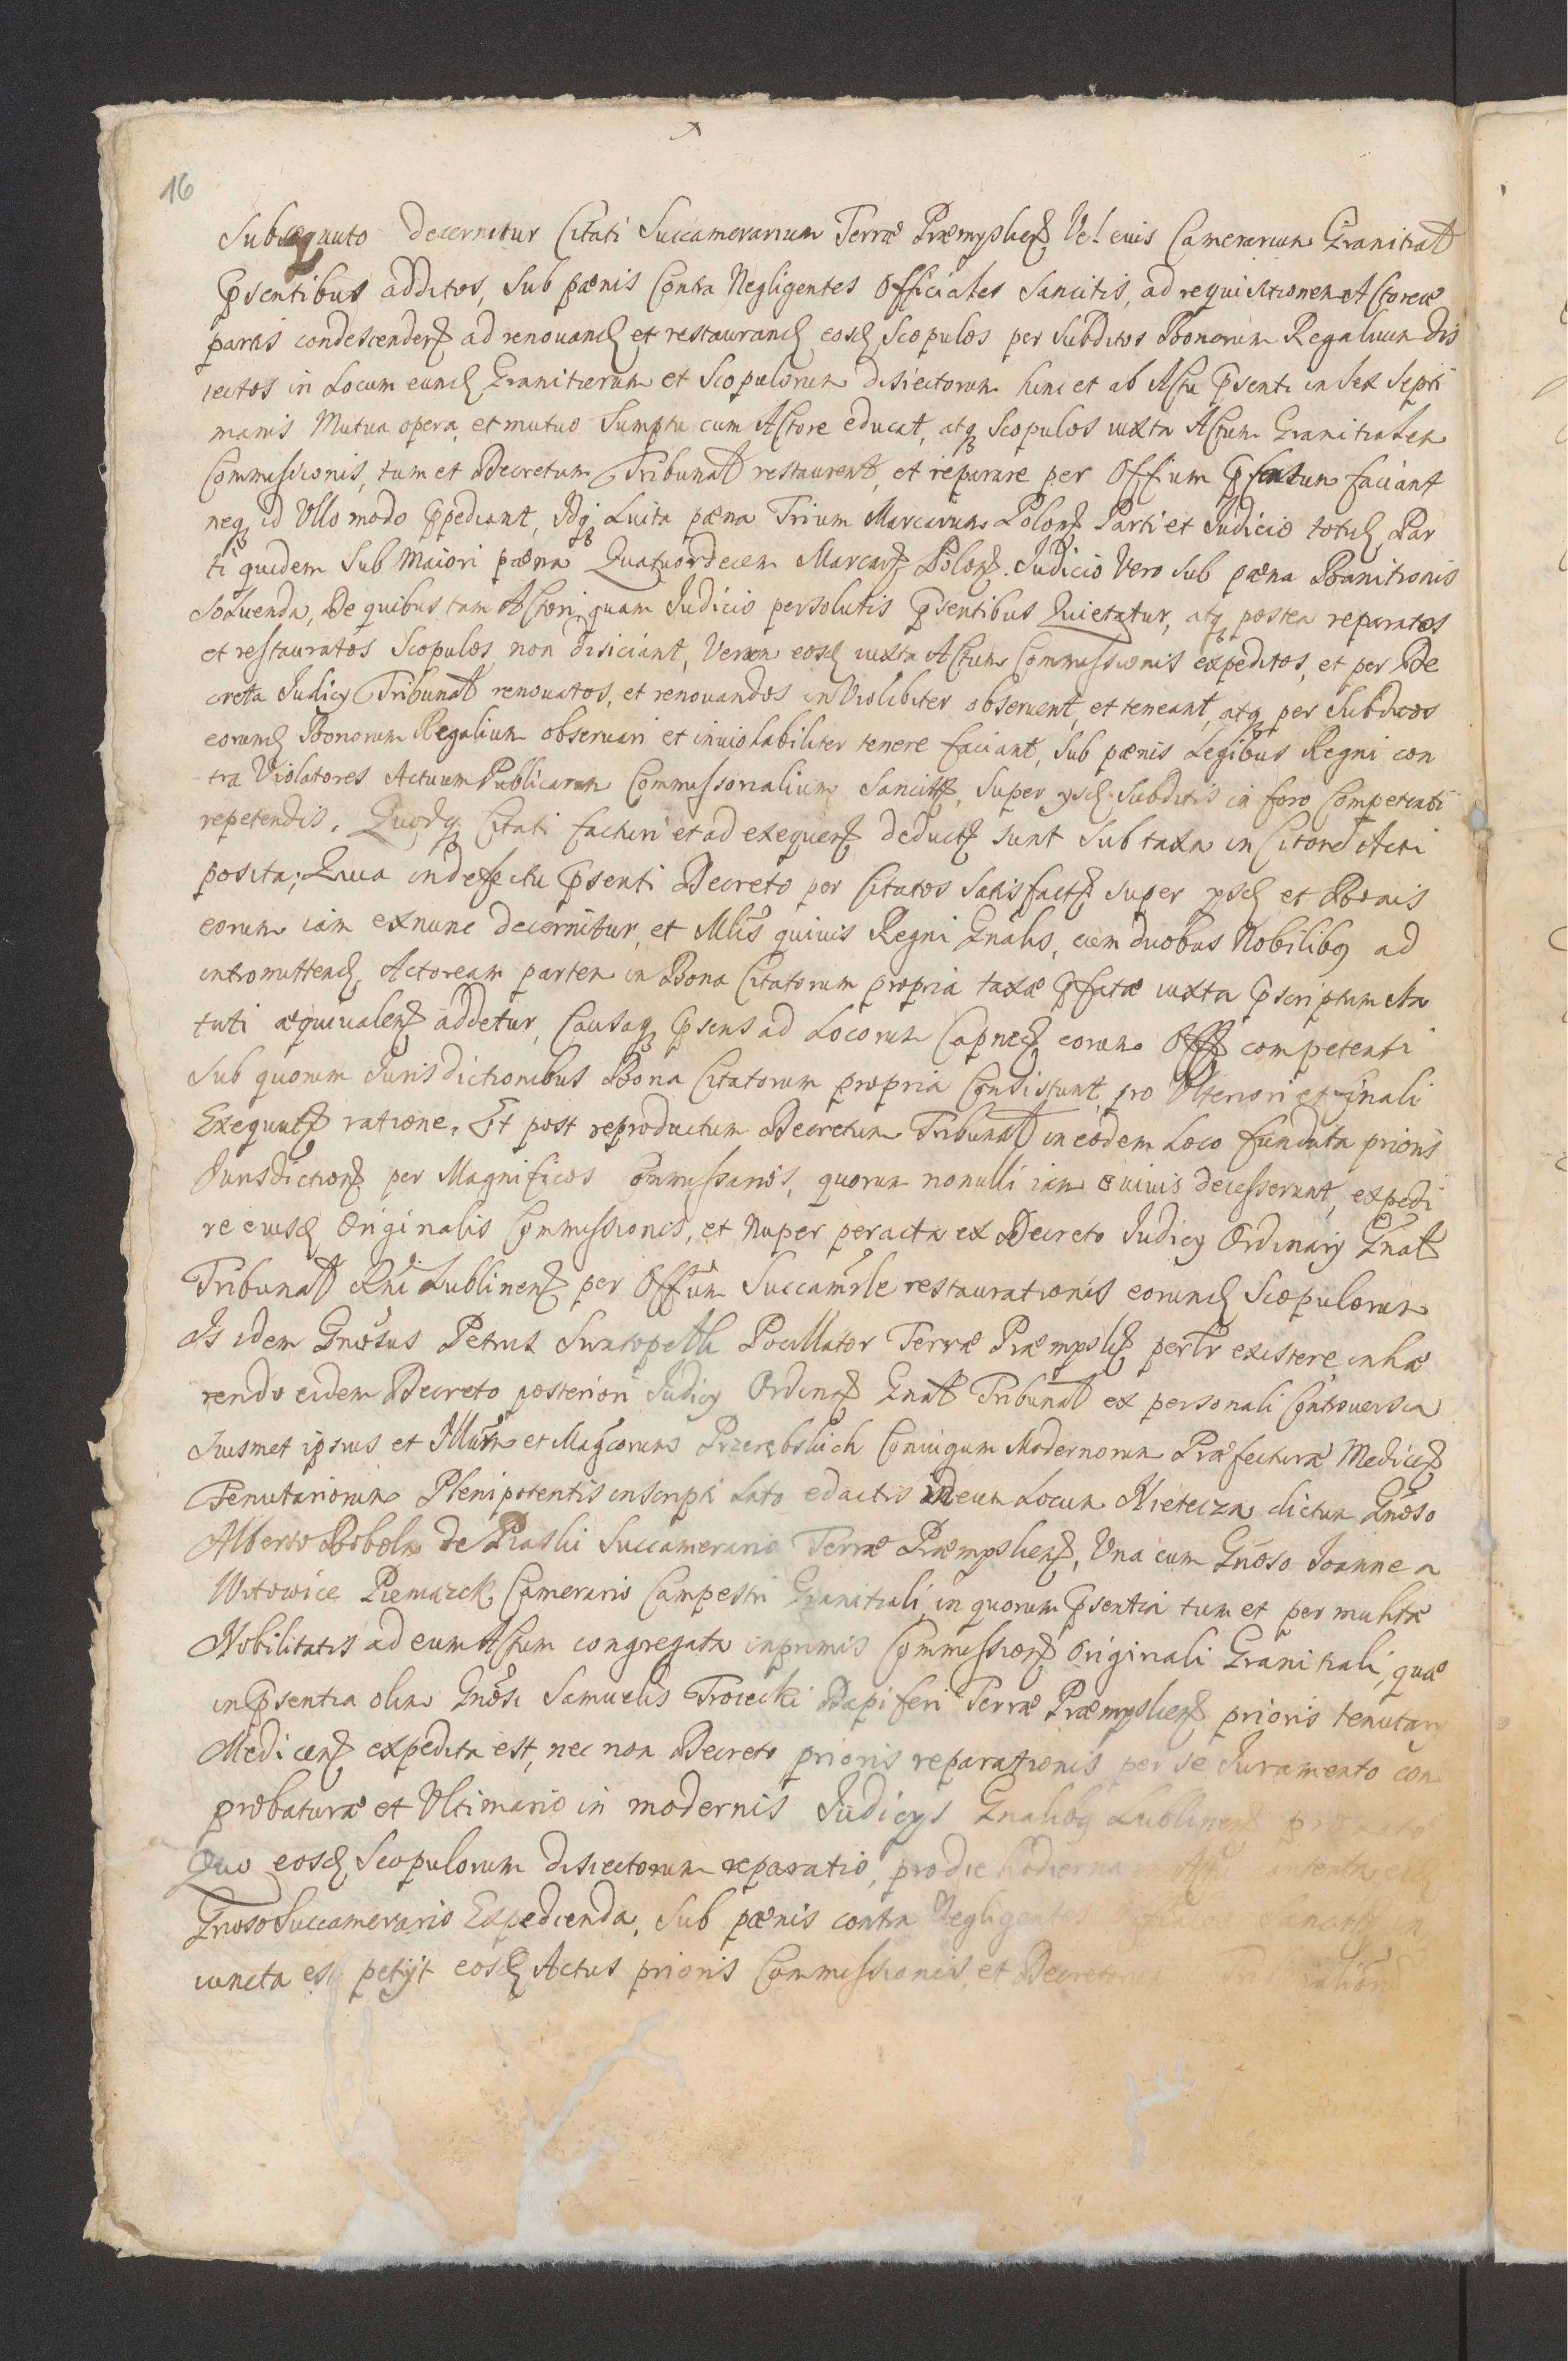 16
Subsequuto decernitur Citati Succamerarium Terræ Præmysliesz Vel eius Camerarium Granitiat
Pſentibus additos, Sub pænis Contra Negligentes Officiales Sancitis, ad requisitionem Actoreæ
partis condescenderz ad renouand et restaurand eosd Scopulos per Subditos Bonorum Regalium dis
iectos in Locum eund Granitierum et Scopulorum disiectorum hinc et ab Actu Pſenti in sex Septi
manis Mutua opera, et mutuo Sumptu cum Actore educat, atq Scopulos iuxta Actum Granitialem
Commissionis, tum et Decretum Tribunal restaurent, et reparare per Offium Pſentum faciant
neq id Vllo modo Ppediant, Idq Luita pæna Trium Marcarum Polonz Parti et Judicio totid Par
ti quidem Sub Maiori pæna Quatuordecem Marcarz Polonz. Judicio Vero sub pæna Banitionis
Soluenda, De quibus tam Actori quam Judicio persolutis Pſentibus Quietatur, atq postea reparatos
et restauratos Scopulos non disiciant, Verum eosd iuxta Actum Commissionis expeditos, et per De
creta Judicy Tribunal renouatos, et renouandos inViolabiliter obseruent, et teneant, atq per Subditos
eorund Bonorum Regalium obseruari et inuiolabiliter tenere faciant, Sub pænis Legibus Regni con
tra Violatores Actuum Publicarum Commissorialium Sancitz, Super ysd Subditis in foro Competenti
repetendis. Quodq Citati facturi et ad exequenz deductz sunt Sub taxa in Citatone Acti
posita; Qua in defectu Pſenti Decreto per Citatos Satisfactz super ysd et Bonis
eorum iam exnunc decernitur, et Mlis quiuis Regni Gnalis, cum duobus Nobilibq ad
intromittend Actoream partem in Bona Citatorum propria taxæ Pfatæ iuxta Pscriptum sta
tuti æquiualenz addetur, Causaq Psens ad Locorum Capnez eorum Offz competenti
Sub quorum Jurisdictionibus Bona Citatorum propria Consistunt, pro Vlteriori et finali
Exequutz ratione. Et post reproductum Decretum Tribunal in eodem Loco fundata prioris
Jurisdictionz per Magnificos Commissarios, quorum nonulli iam e uiuis decesserunt, expedi
re eiusd Originalis Commissionis, et Nuper peracta ex Decreto Judicy Ordinarij Gnal
Tribunal Rni Lublinenz per Offium Succamrle restaurationis eorund Scopulorum
Is idem Gnosus Petrus Swatopelk Pocillator Terræ Præmyslz perlr existere inhæ
rendo eidem Decreto posteriori Judicy Ordinaz Gnal Tribunal ex personali Controuersia
Suismet ipsius et Illūm et Magcorum Przerębskich Coniugum Modernorum Præfecturæ Medicz
Tenutariorum Plenipotentis inscripti Lato ed actis in eum Locum Nieteczn dictum Gnoso
Alberto Bobola de Piaski Succamerario Terræ Præmyslienz, Una cum Gnoso Joanne a
Witowice Piemiazek Camerario Campestri Granitiali, in quorum Pſentia tum et per multæ
Nobilitatis ad eum Actum congregata inprimis Commissionz Originali Granitiali, quæ
in Pſentia olim Gnosi Samuelis Troiecki Dapiferi Terræ Præmyslienz prioris tenutary
Medicenz expedita est, nec non Decreto prioris reparationis per se Juramento con
probaturæ et Vltimario in modernis Judicys Gnalibq Lublinenz
Quo eosd Scopulorum disiectorum reparatio, pro die hodierna
Gnoso Succamerario Expedienda, Sub pænis contra Negligentes
iuncta est petyt eosd Actus prioris Commissionis, et Decretorum